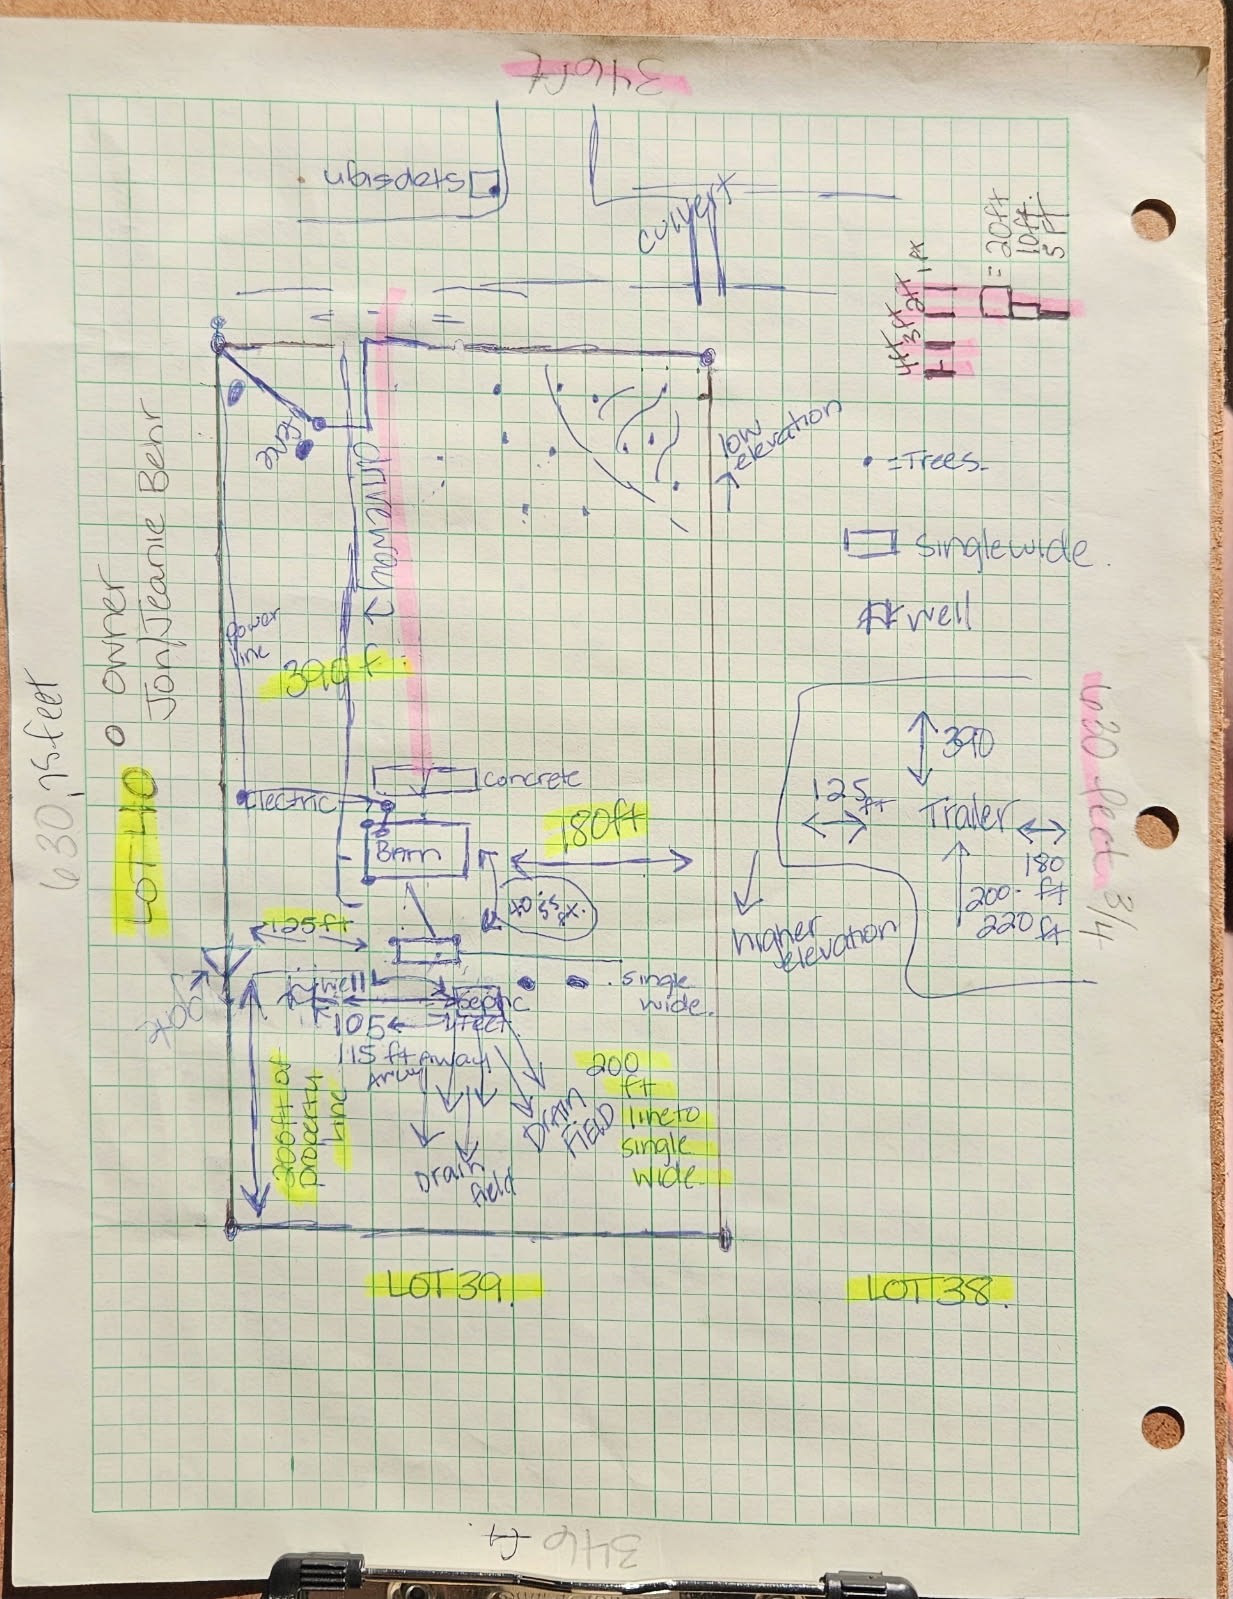 346ft
Stopsign
culvert
= 20ft
10ft.
5 ft
1ft
2ft
3ft
4ft
low
elevation
• =Trees.
Singlewide.
## well
driveway
Power
line
390 f
O owner
Jon/Jeanie Behr
630.75feet
LOT 40
concrete
Electric
Barn
180ft
390
125
ft
Trailer
180
ft
200-
220 ft
630 feet 3/4
higher
elevation
125ft
single
wide.
well
Septic
105
115 ft away
200ft of
property
line
Drain
field
DRAIN
FIELD
200
ft
line to
single
wide.
LOT 39.
LOT 38.
346 ft.